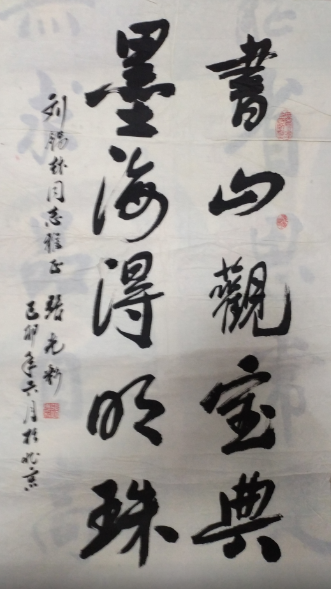 書山觀宝典
墨海得明珠
刘 林同志雅正 張
己卯年六月於北京